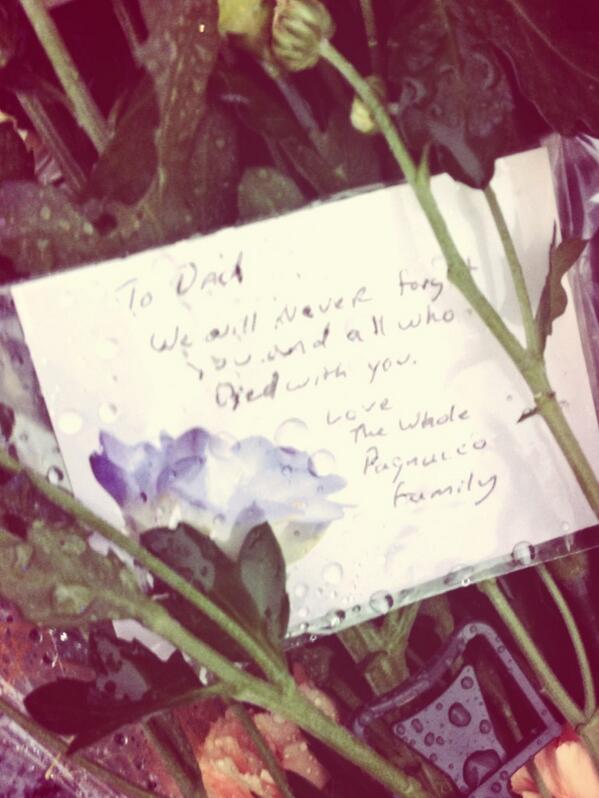 To Dad
We will Never forget
You and all who
Died with you.
Love
The Whole
Pagnucco
family